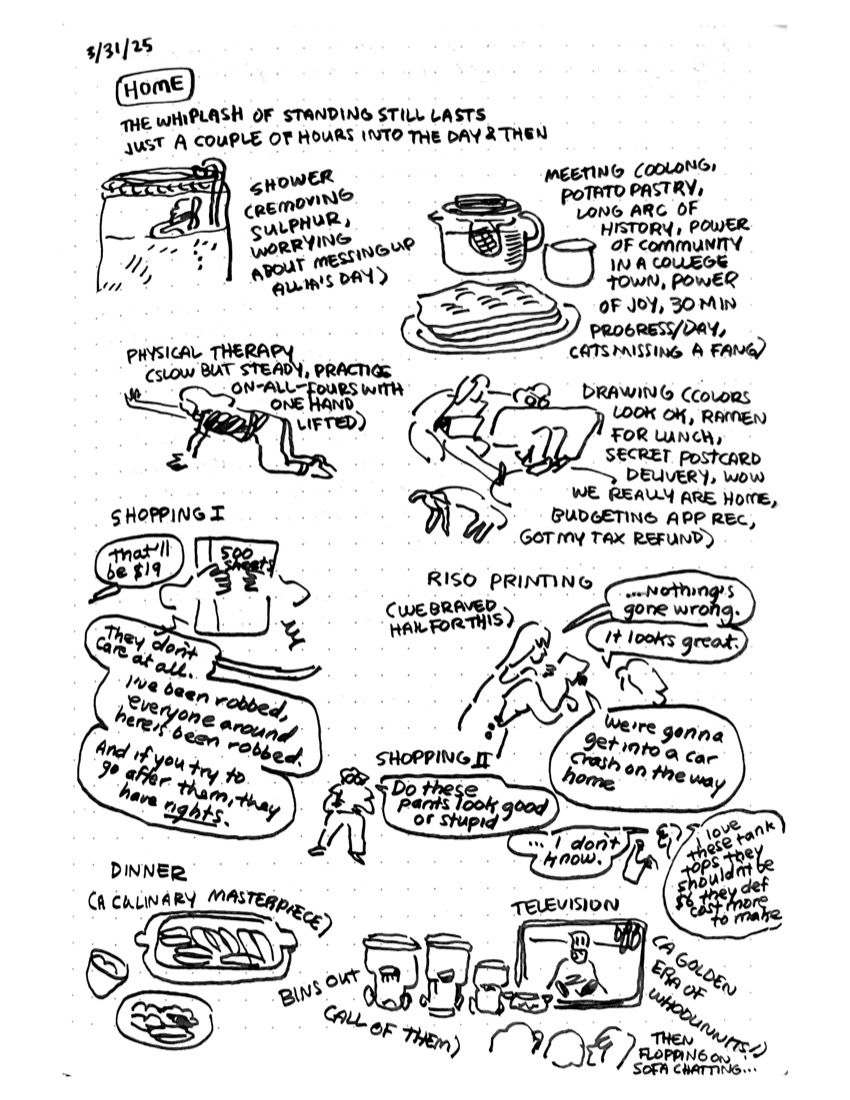 3/31/25
HOME
THE WHIPLASH OF STANDING STILL LASTS
JUST A COUPLE OF HOURS INTO THE DAY & THEN
SHOWER
(REMOVING
SULPHUR,
WORRYING
ABOUT MESSING UP
ALLIA'S DAY)
MEETING (OOLONG,
POTATO PASTRY,
LONG ARC OF
HISTORY, POWER
OF COMMUNITY
IN A COLLEGE
TOWN, POWER
OF JOY, 30 MIN
PROGRESS/DAY,
CATS MISSING A FANG)
PHYSICAL THERAPY
(SLOW BUT STEADY, PRACTICE
ON-ALL-FOURS WITH
ONE HAND
LIFTED)
DRAWING (COLORS
LOOK OK, RAMEN
FOR LUNCH,
SECRET POSTCARD
DELIVERY, WOW
WE REALLY ARE HOME,
BUDGETING APP REC,
GOT MY TAX REFUND)
SHOPPING I
That'll
be $19
500
sheets
They don't
care at all.
I've been robbed,
everyone around
here's been robbed.
And if you try to
go after them, they
have rights.
RISO PRINTING
(WE BRAVED
HAIL FOR THIS)
...Nothing's
gone wrong.
It looks great.
We're gonna
get into a car
crash on the way
home
SHOPPING II
Do these
pants look good
or stupid
... I don't
know.
I love
these tank
tops they
shouldn't be
$6 they def
cost more
to make
DINNER
(A CULINARY MASTERPIECE)
BINS OUT
(ALL OF THEM)
TELEVISION
(A GOLDEN
ERA OF
WHODUNNITS!)
THEN
FLOPPING ON
SOFA CHATTING...